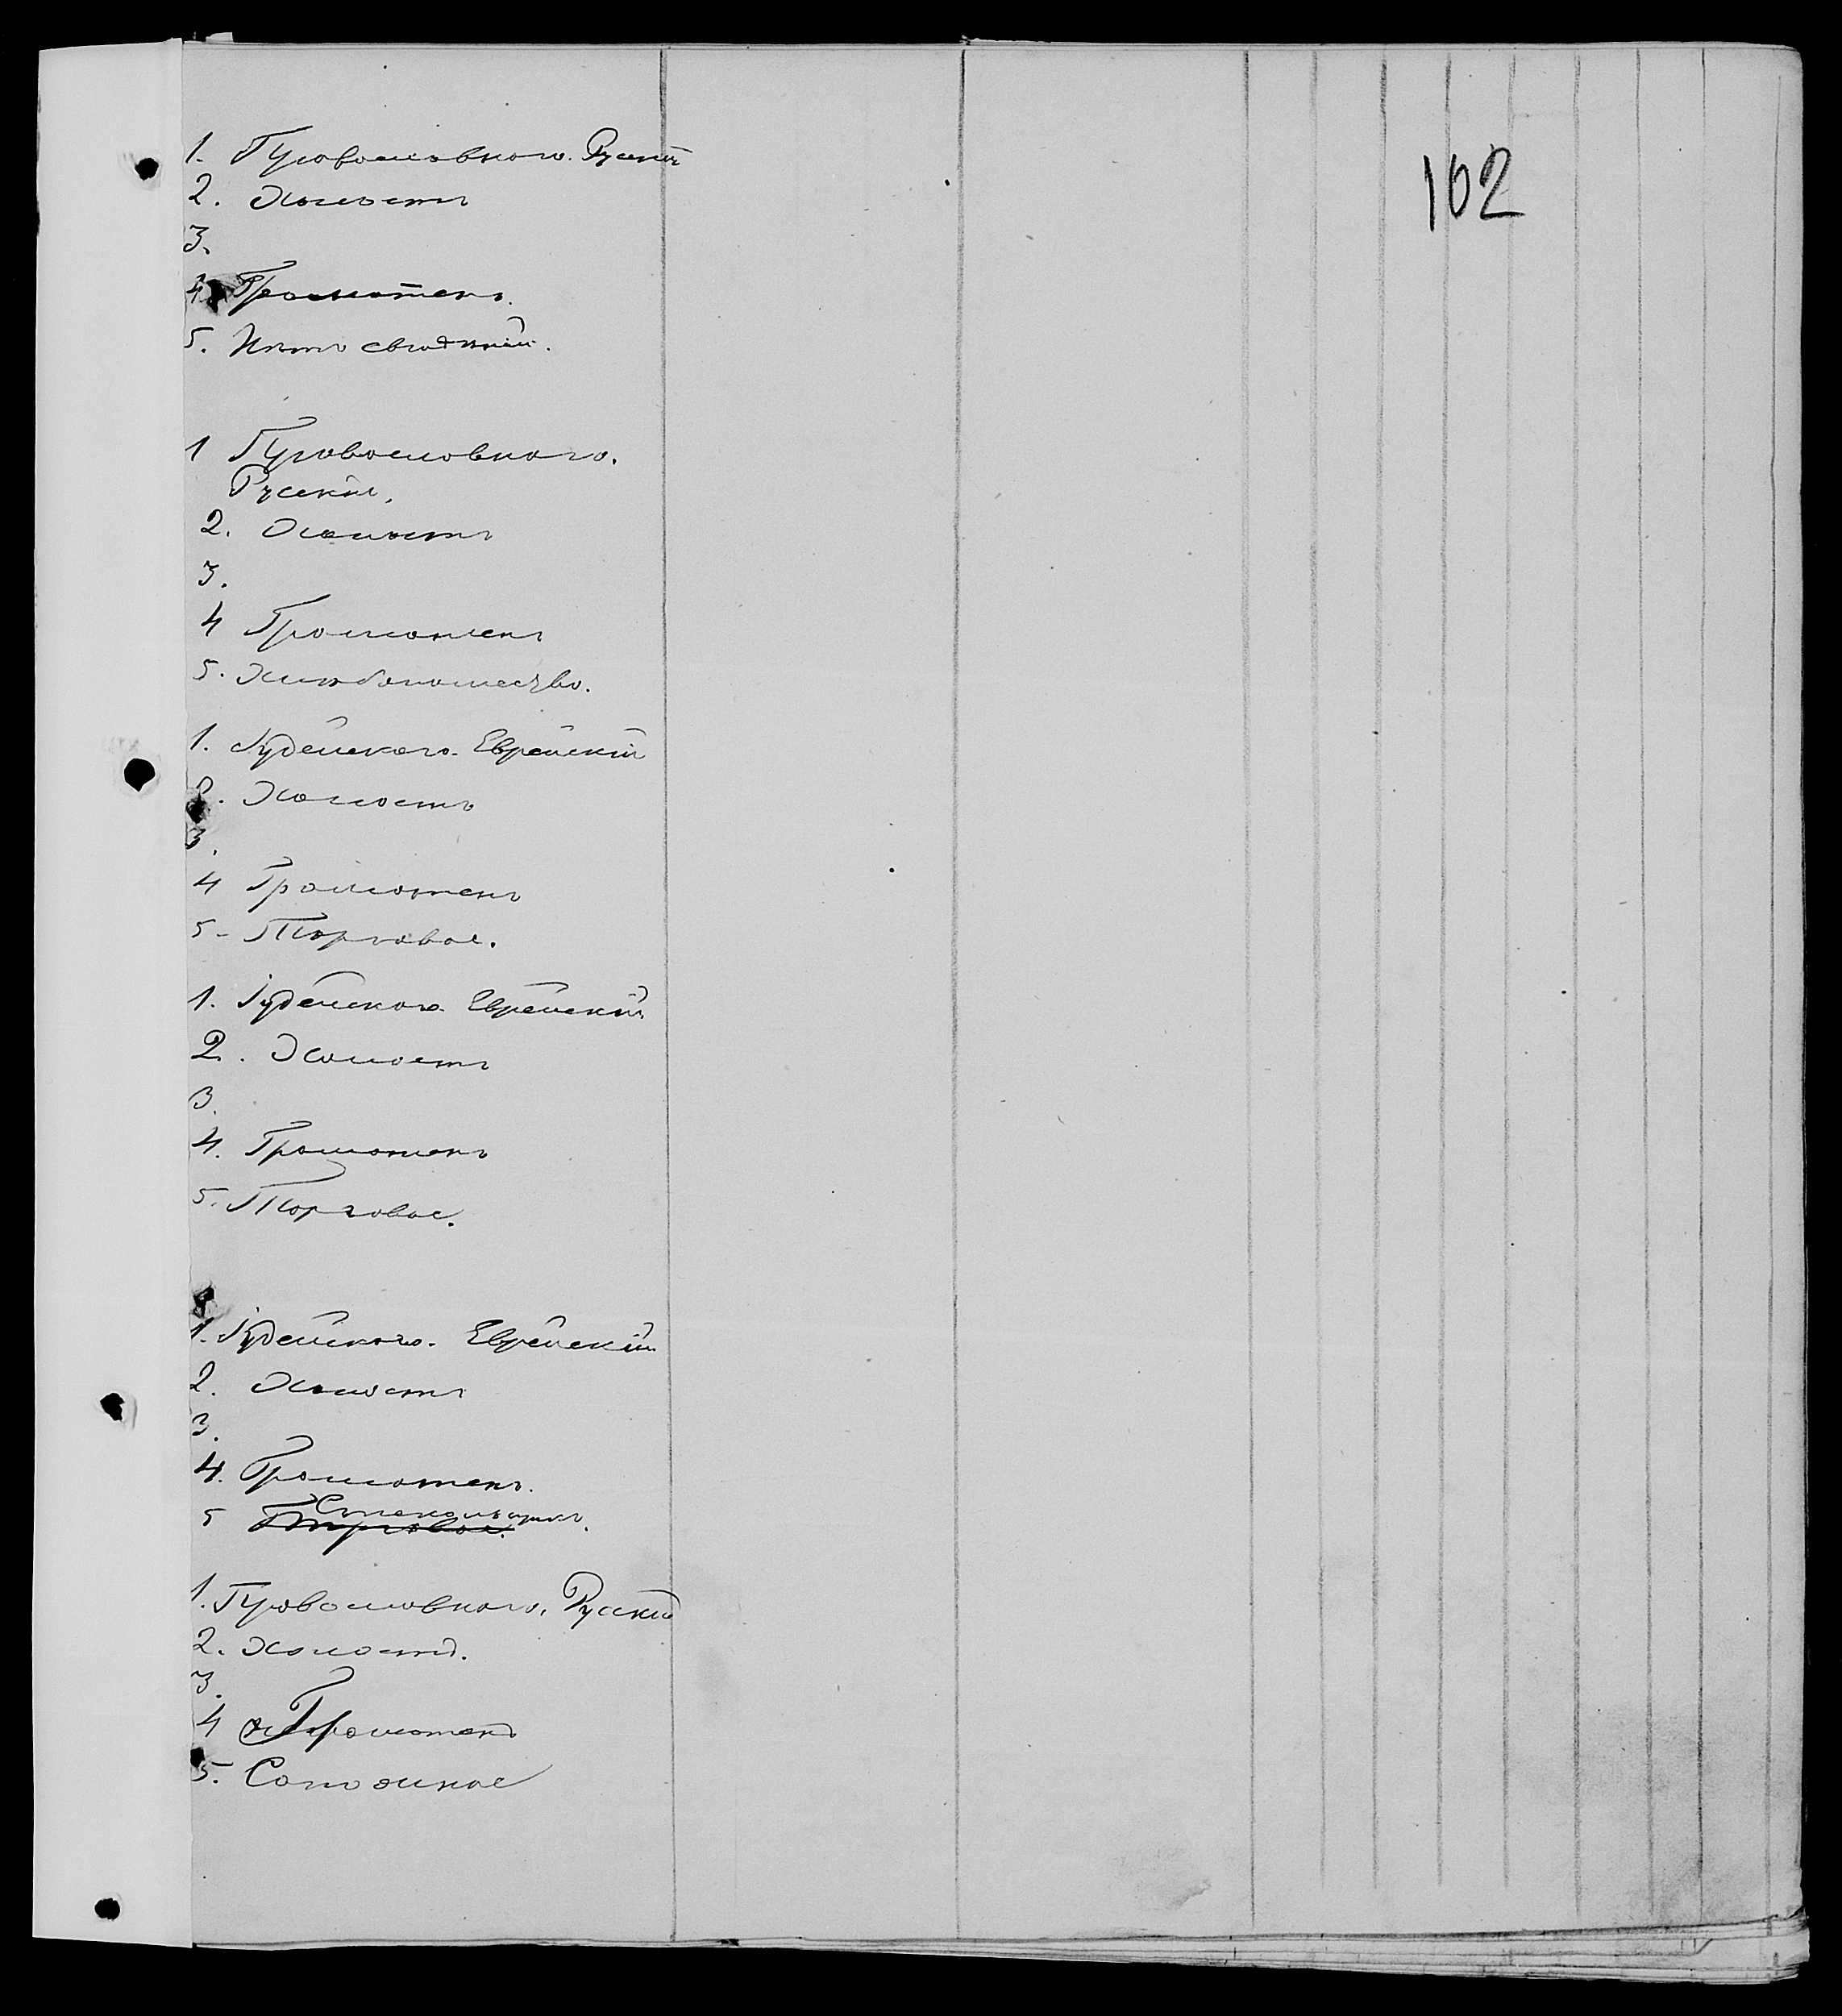 102
1. Православного. Русскій
2. Холостъ
3.
4. Грамотенъ.
5. Нетъ сведеній.
1 Православного.
Русскій.
2. Холостъ
3.
4 Грамотенъ
5. Хлебопашество.
1. Іудейского. Еврейскій
2. Холостъ
3.
4 Грамотенъ
5- Торговое.
1. Іудейского. Еврейскій
2. Холостъ
3.
4. Грамотенъ
5. Торговое.
1. Іудейского. Еврейскій
2. Холостъ
3.
4. Грамотенъ.
Стекольщикъ.
5 Торговое.
1. Православного. Русскій
2. Холостъ.
3.
4 Грамотенъ
5. Сапожное